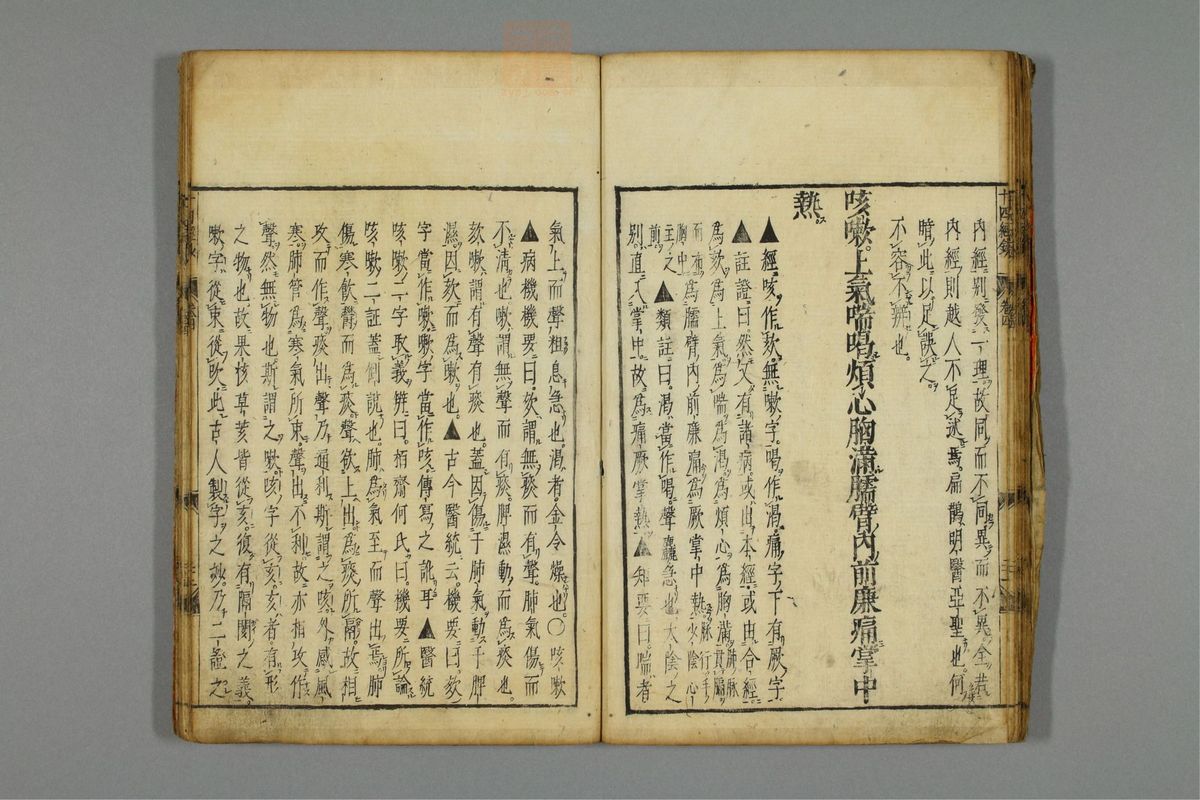 內經別發一理故同而不同異而不異全
內經則越人不足述焉扁鵲明醫亞聖也何
此以足誤之
不容不辨也
咳嗽上氣喘喝煩心胸滿臑臂內前廉痛掌中
熱
▲經咳作欬無嗽字喝作渴痛字下有厥字
▲註證曰然又有諸病或出本經或由合經
為欬為上氣為喘為渴為煩心為胸滿肺脈貫膈
布胸中為臑臂內前廉痛為厥掌中熱脈行少陰心
主之前▲類註曰渴當作喝聲麤急也太陰之
別直入掌中故為痛厥掌熱▲知要曰喘者
氣上而聲粗息急也渴者金令燥也〇咳嗽
▲病機機要曰欬謂無痰而有聲肺氣傷而
不清也嗽謂無聲而有痰脾濕動而為痰也
欬嗽謂有聲有痰也蓋因傷于肺氣動于脾
濕因欬而為嗽也▲古今醫統云機要曰欬
字當作嗽嗽字當作咳傳寫之訛耳▲醫統
咳嗽二字取義辨曰栢齋何氏曰機要所論
咳嗽二証蓋倒說也肺為氣至而聲出焉肺
傷寒飲鬱而為痰聲欲上出為痰所隔故相
攻而作聲痰出聲乃通利斯謂之咳外感風
寒肺管為寒氣所束聲出不利故亦相攻作
聲然無物也斯謂之嗽咳字從亥亥者有形
之物也故果核草荄皆從亥復有隔閡之義
嗽字從束從吹此古人製字之妙乃二證之